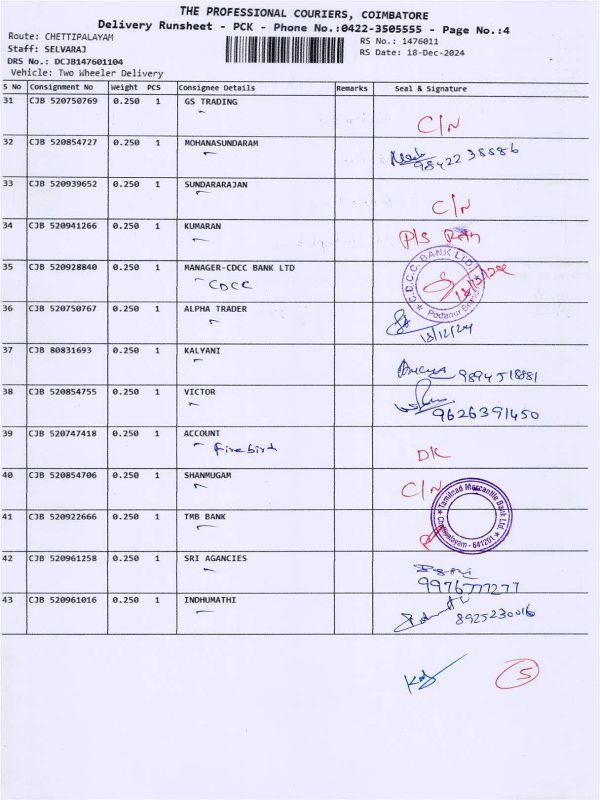 THE PROFESSIONAL COURIERS, COIMBATORE
Delivery Runsheet - PCK - Phone No.:0422-3505555 - Page No.:4
Route: CHETTIPALAYAM
RS No.: 1476011
Staff: SELVARAJ
RS Date: 18-Dec-2024
DRS No.: DCJB147601104
Vehicle: Two Wheeler Delivery
S No Consignment No Weight PCS Consignee Details Remarks Seal & Signature
31 CJB 520750769 0.250 1 GS TRADING
C/N
32 CJB 520854727 0.250 1 MOHANASUNDARAM
33 CJB 520939652 0.250 1 SUNDARARAJAN
C/N
34 CJB 520941266 0.250 1 KUMARAN
P/S
35 CJB 520928840 0.250 1 MANAGER-CDCC BANK LTD
CDCC
C.D.C.C. BANK LTD.
Podanur
36 CJB 520750767 0.250 1 ALPHA TRADER
18/12/24
37 CJB 80831693 0.250 1 KALYANI
38 CJB 520854755 0.250 1 VICTOR
9626391450
39 CJB 520747418 0.250 1 ACCOUNT
firebird
DK
40 CJB 520854706 0.250 1 SHANMUGAM
C/N
Tamilnad Mercantile Bank Ltd.
41 CJB 520922666 0.250 1 TMB BANK
641201
42 CJB 520961258 0.250 1 SRI AGANCIES
43 CJB 520961016 0.250 1 INDHUMATHI
8925230016
5